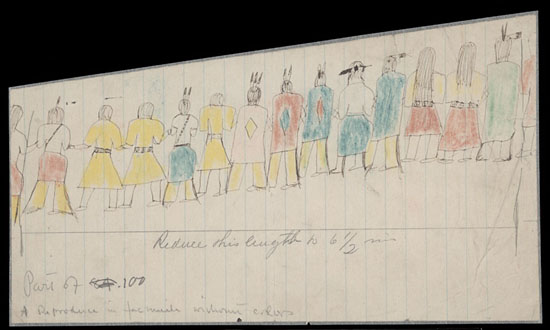 Reduce this length to 6 1/2 in
Part of 100
A Reproduce in facsimile without colors